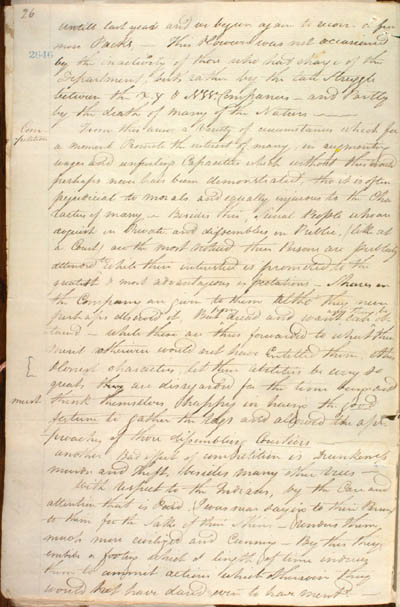 26
2646
untill last year and we begun again to recover a few
more Packs — This Downcast was not occasioned
by the inactivity of those who had charge of the
Department, but rather by the late Struggle
between the X Y & N W Companies — and Partly
by the death of many of the Natives —
Com-
petition
From this arose a Variety of circumstances which for
a moment Promote the interest of many, in augmenting
wages and unfurling Capacities which without this would
perhaps never have been demonstrated, tho it is often
prejudicial to morals and equally injurious to the Cha
racters of many — Besides this, Several People who are
in Private and dissemblers in Public, (like at
a Court) are the most noticed their Persons are
attend while their interested is promoted to the
most advantageous expectations — Shares in
the Company are given to them altho they never
perhaps deserved it, But dread and want
while there are thus forwarded to what their
merit otherwise would not have Entitled them, other
characters let their abilities be very so
great, they are disregarded for the time being and
must
think themselves happy in having the Good
fortune to gather the Eggs and avoid the ap
proaches of those dissembling Courtiers
another Bad effect of competition is Drunkenness
and theft, besides many other vices —
With respect to the Indians, by the Care and
attention that is Paid from day to
to them for the Sake of their Skins — Renders them
much more and Cunning — By this they
a footing which at length of time induces
them to commit actions which otherwise they
would not have dared even to have